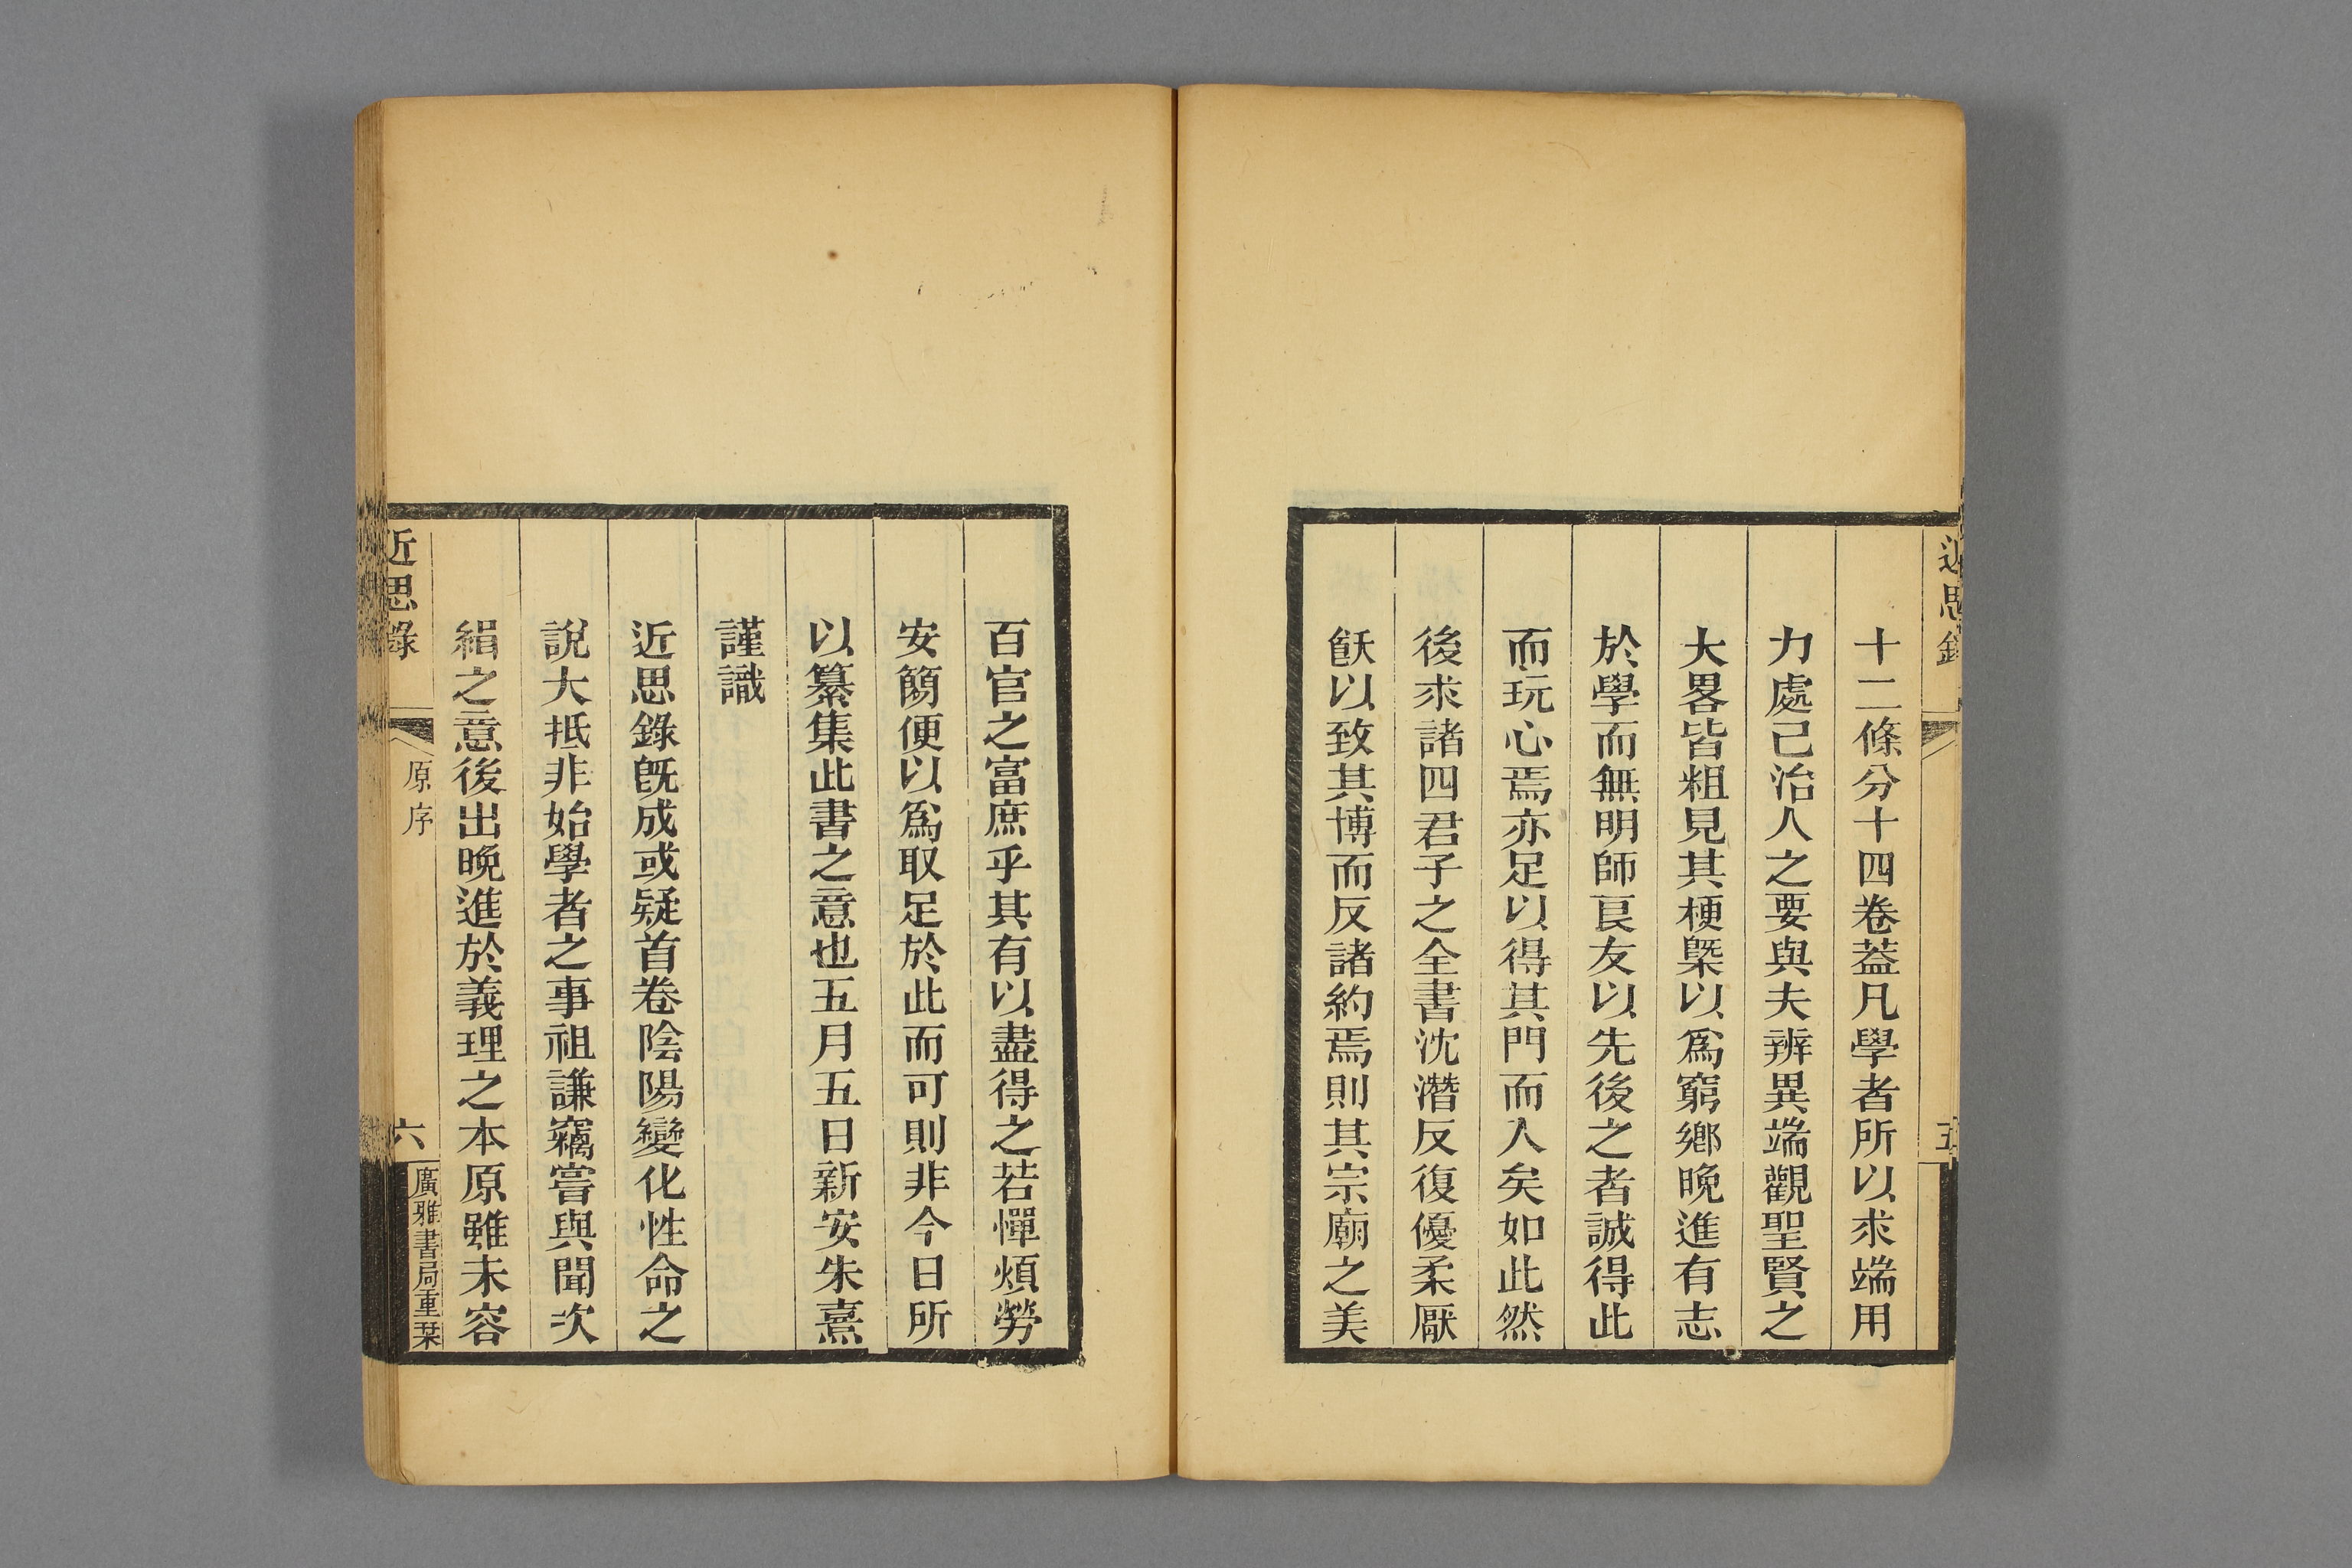 近思錄
五
十二條分十四卷葢凡學者所以求端用
力處己治人之要與夫辨異端觀聖賢之
大畧皆粗見其梗槩以爲窮鄉晚進有志
於學而無明師良友以先後之者誠得此
而玩心焉亦足以得其門而入矣如此然
後求諸四君子之全書沈潛反復優柔厭
飫以致其博而反諸約焉則其宗廟之美
百官之富庶乎其有以盡得之若憚煩勞
安簡便以爲取足於此而可則非今日所
以纂集此書之意也五月五日新安朱熹
謹識
近思錄旣成或疑首卷陰陽變化性命之
說大抵非始學者之事祖謙竊嘗與聞次
緝之意後出晚進於義理之本原雖未容
近思錄
原序
六
廣雅書局重栞